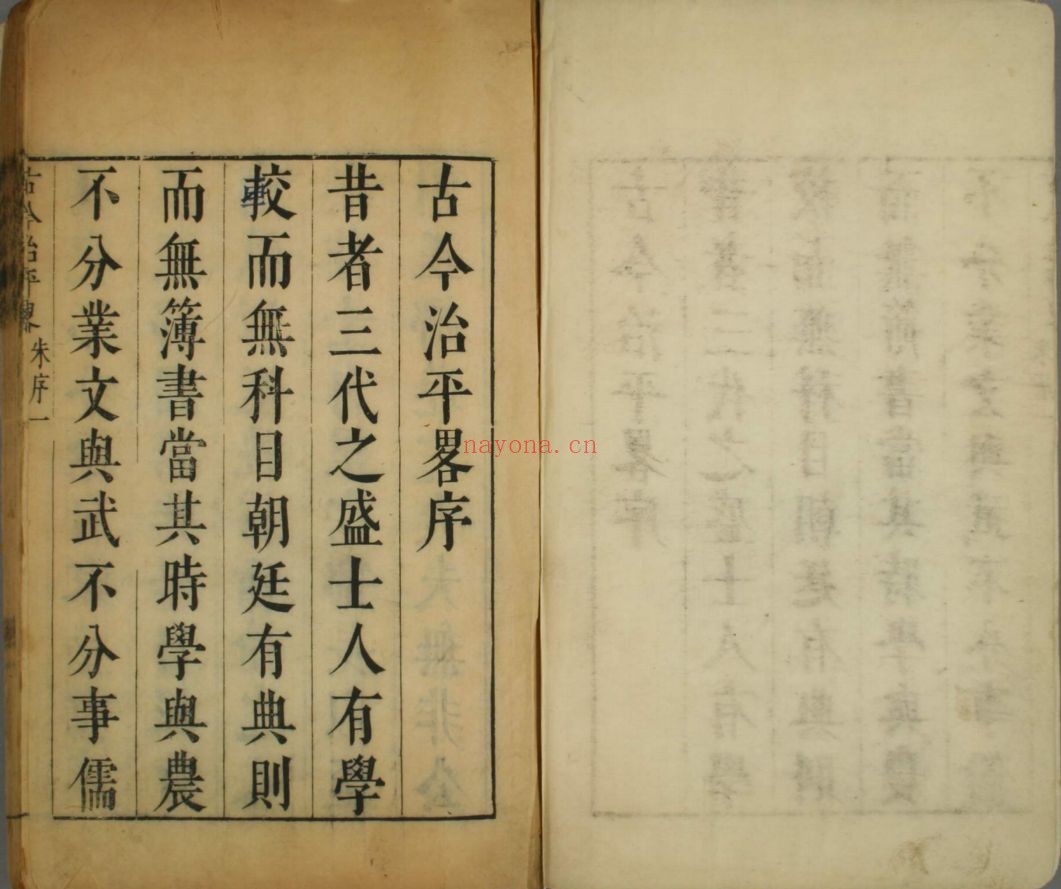 古今治平畧序
昔者三代之盛士人有學
較而無科目朝廷有典則
而無簿書當其時學與農
不分業文與武不分事儒
古今治平畧 朱序 一
nayona.cn